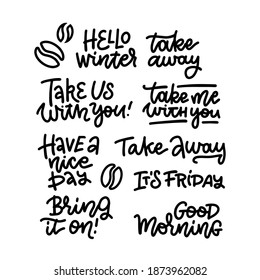 HELLO
winter
take
away
Take US
with you!
take me
with you
HAVE A
nice
DAY
Take away
IT'S FRIDAY
Bring
it on!
GOOD
Morning
shutterstock.com · 1873962082